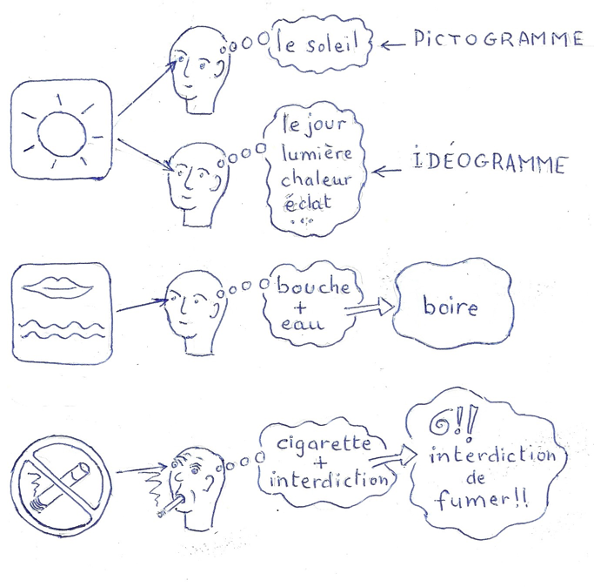 le soleil
← PICTOGRAMME
le jour
lumière
chaleur
éclat
...
← IDÉOGRAMME
bouche
+
eau
boire
cigarette
+
interdiction
!!
interdiction
de
fumer!!